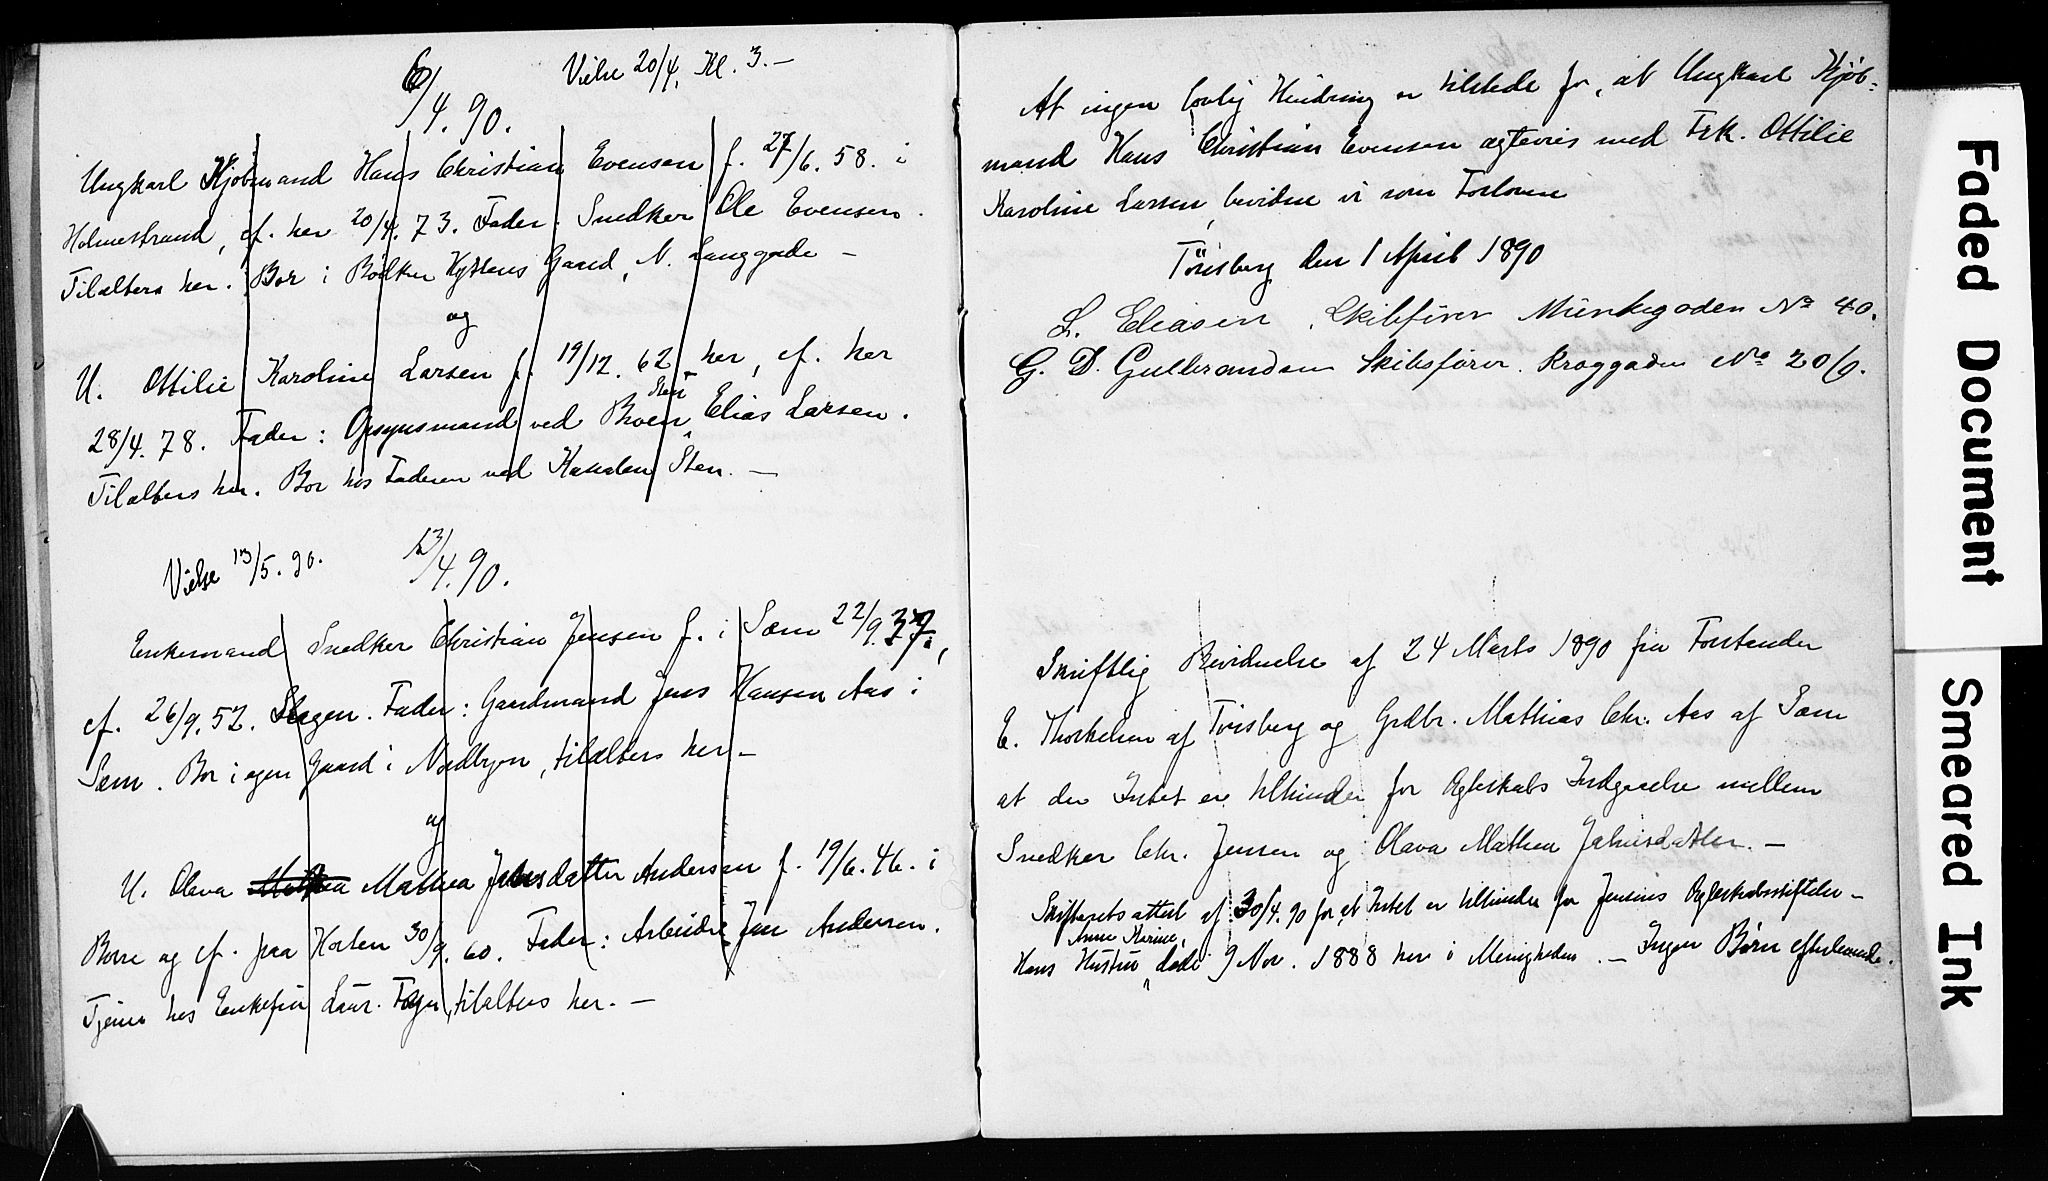 6/4. 90.
Vielse 20/4, Kl. 3. —
Ungkarl Kjøbmand Hans Christian Evensen f. 27/6. 58. i
Holmestrand, cf. her 20/4. 73. Fader: Snedker Ole Evensen.
Tilalters her. Bor i Bødker Gaard, N. Langgade —
og
U. Ottilie Karoline Larsen f. 19/12. 62 her, cf. her
28/4. 78. Fader: Opsynsmand ved Broen Elias Larsen.
Tilalters her. Bor hos Faderen ved Kanalen Sten. —
13/4. 90.
Vielse 13/5. 90.
Enkemand Snedker Christian Jensen f. i Sæm 22/9. 37,
cf. 26/9. 52. Slagen. Fader: Gaardmand Jens Hansen Aas i
Sæm. Bor i egen Gaard i Nordbyen, tilalters her —
og
U. Olava Mathea Jahnsdatter Andersen f. 19/6. 46. i
Borre og cf. paa Horten 30/9. 60. Fader: Arbeider Jan Andersen.
Tjener hos Enkefru Laur. Foyn, tilalters her. —
At ingen lovlig Hindring er tilstede for, at Ungkarl Kjøb-
mand Hans Christian Evensen ægtevies med Frk. Ottilie
Karoline Larsen, bevidne vi som Forlovere
Tönsberg den 1 April 1890
L. Eliasen, Skibfører Munkegaden No 40.
G. D. Gulbrandsen Skibsfører. Kroggaden No 20/9.
Skriftlig Bevidnelse af 24 Marts 1890 fra Forstander
E. Thorkelsen af Tönsberg og Grdbr. Mathias Chr. Aas af Sæm
at der Intet er tilhinder for Egteskabs Indgaaelse mellem
Snedker Chr. Jensen og Olava Mathea Jahnsdatter. —
Skifteretsattest af 30/4. 90 for, at Intet er tilhinder for Jensens Egteskabsstiftelse —
Hans Hustru Anne Karine, døde 9 Nov. 1888 her i Menigheden. — Ingen Børn efterlevende.
Faded Document
Smeared Ink